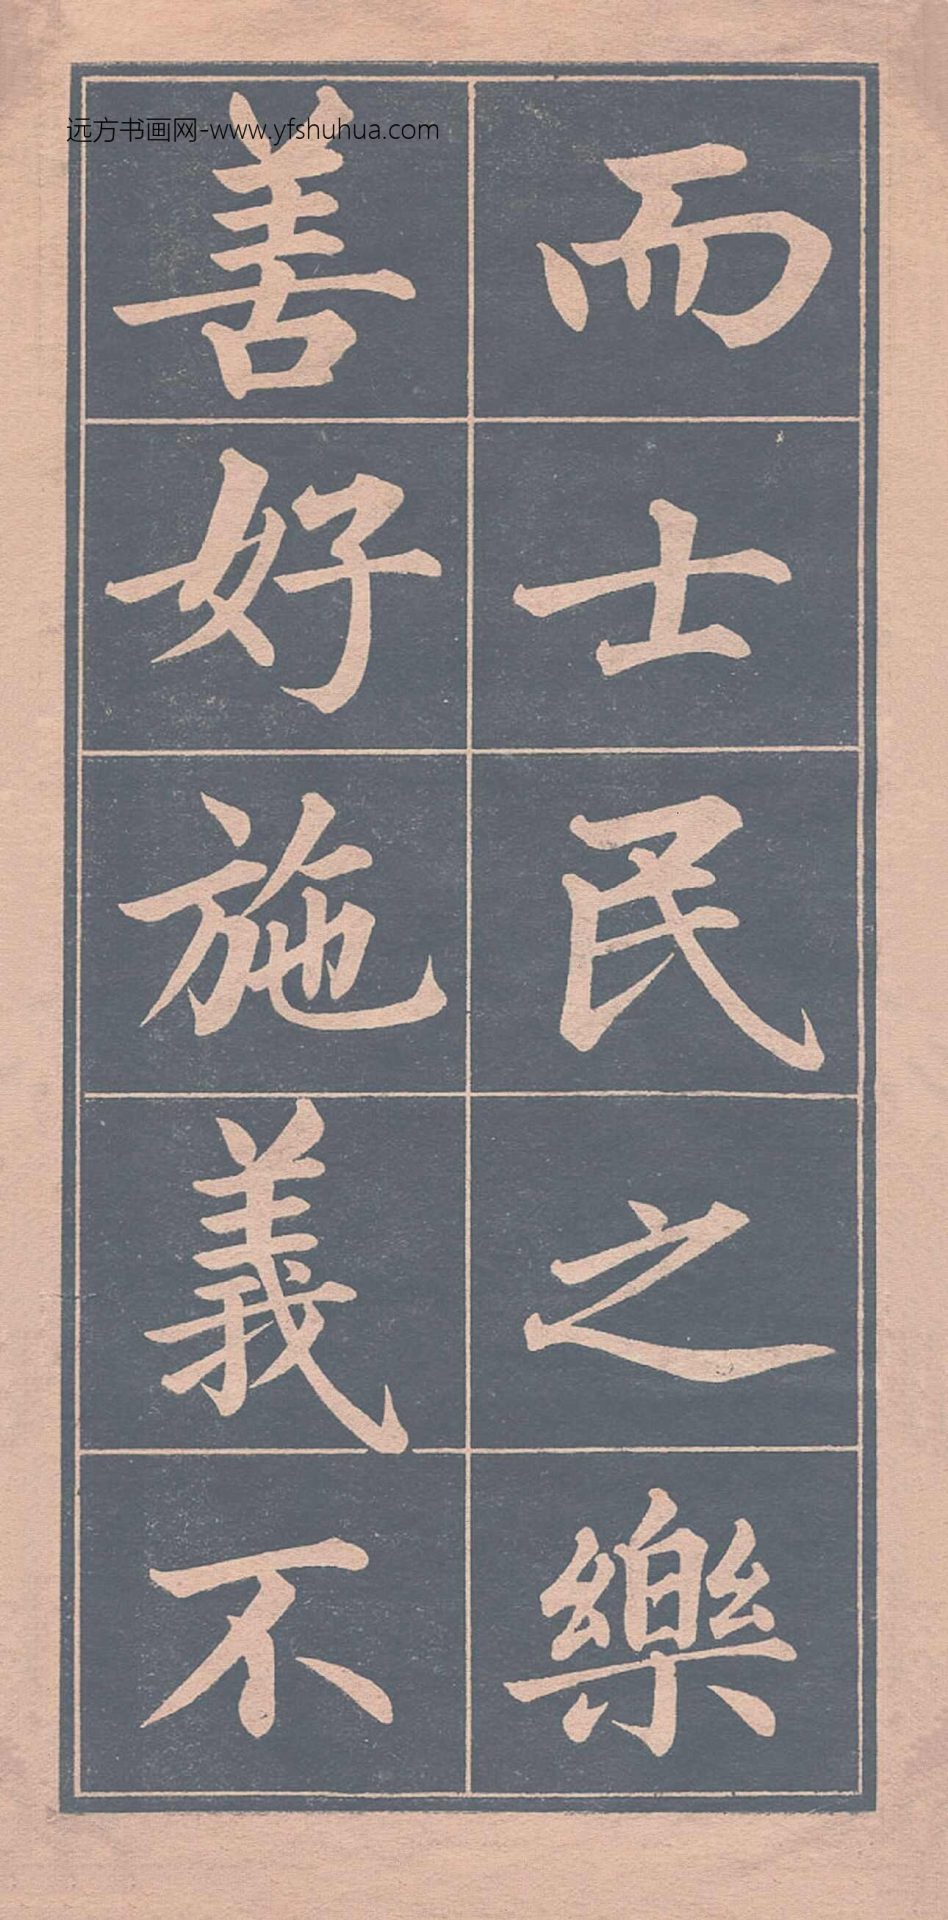 远方书画网-www.yfshuhua.com
而士民之樂
善好施義不